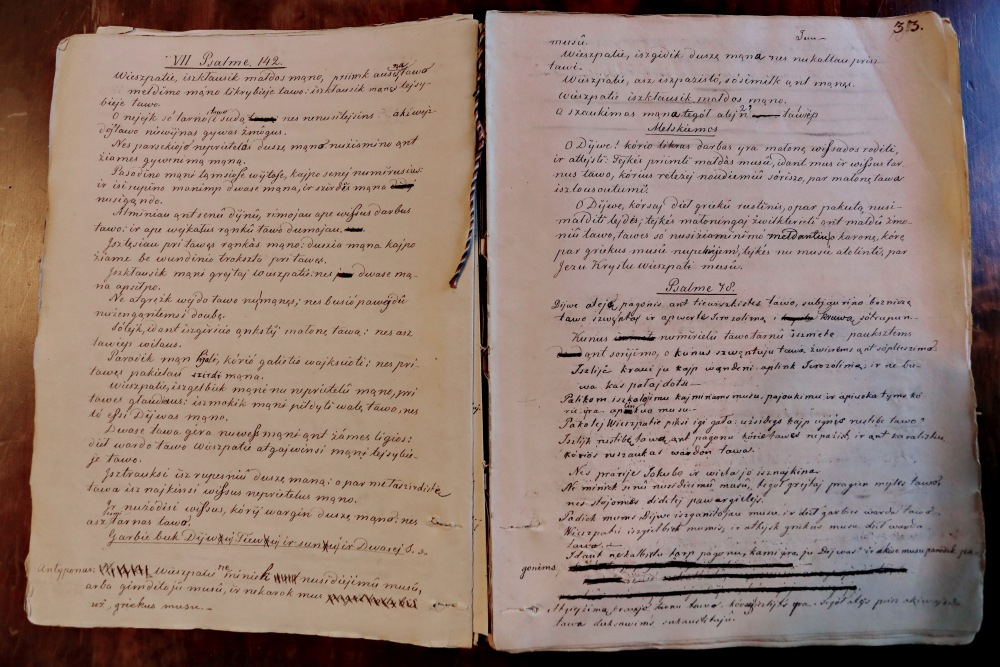 VII Psalme. 142.
Wieszpatie, iszkłausik małdos mąno, priimk ausų na tawo
meldimo mąno tikrybieje tawo: iszkłausik manę tejsy-
bieje tawo.
O nejejk só tarnu tawo sudą nes nenusitejsins akiwejz
dój tawo niewijnas gywas żmogus.
Nes parsekiojo neprietelis duszę mąno nużiamino ąnt
żiamės gywenimą mąną.
Pasodino manę tąmsiose wýtose, kajpo senej numirusius:
ir isirupino manimp dwasę mąna, ir szirdis mąna
nusigąndo.
Atminiau ąnt senû dýnû, rimojau ape wissus darbus
tawo: ir ape wejkalus rąnkû tawo dumojau,
Isztęsiau pri tawęs rąnkas mąno: duszia mąna kajpo
żiame be wundenio trokszta pri tawęs.
Iszkłausik mąnę grejtaj Wieszpatie: nes dwasę mą-
na apsilpo.
Ne atgrężk wejdo tawo nu mąnęs; nes busió pawejdus
nużengantims i doubę.
Sótejk, idant iszgirsió ąnkstij małonę tawa: nes asz
tawiep wilaus.
Parodik mąn kielę, kórió galietió wajksćioti; nes pri
tawęs pakielau szirdi mąna.
Wieszpatie, iszgelbiek mąnę nu neprietelû mąno, pri
tawęs glaudżius: iszmokik mąnę pildyti walę tawo, nes
tó essi Dijwas mąno.
Dwase tawa gira nuwess mąnę ąnt żiames ligios:
diel wardo tawo Wieszpatie atgajwinsi mąnę tejsybie-
je tawo.
Isztrauksi isz rupesniû duszę maną: o par mielaszirdistę
tawa isz najkinsi wissus neprietelus mąno.
Ir nużódisi wissus, kórij wargin duszę mąno: nes
asz tarnas tawo.
Garbie buk Dijwuj Tiewuj ir sunuj ir Dwasej S. s.
Antyponas: Wieszpatie ne minek nusidejimû musû,
arba gimditojû musû, ir nekarok mus
uż griekus musu. —
33.
Tuu—
musû.
Wieszpatie, iszgivik duszę mąna nes nukaltau prisz
tawi.
Wieszpatie, asz iszpażistó, sósimilk ąnt mąnęs.
Wieszpatie iszkłausik małdos mąno.
O szaukimas mąna tegól atejn tawęp
Melskiamos
O Dijwe! kório tikras darbas yra malonę wissados roditi,
ir atlejsti: Tejkis priimti małdas musû, idant mus ir wissus tar-
nus tawo, kórius reteżej noudiemiû sóriszo, par malonę tawa
iszlousoutumû.
O Dijwe, kórsaj diel griekû rustinis, o par pakutą nusi-
malditi lejdęs; tejkis małoningaj żwilktereti ąnt małdû żmo-
niû tawo, tawęs só nusiżiaminimo meldantiujo karonę, kórę
par griekus musû nupelnijem, tejkis nu musû atolinti, par
Jezu Krystu Wieszpati musû.
Psalme 78.
Dijwe atejo pagonis ąnt tiewiszkistes tawo, subjaurino boznicze
tawo szwęntą ir apwertė Jerozolimą i krawą sótrupin-
Kunus numirielû tawo tarnû sumetę pauksztems
ąnt sorijimo, o kunus szwęntuju tawa żwierims ąnt sóplieszimo
Iszlijo krauj ju kajp wąndeni aplink Jerozolimą, ir ne bu-
wa kas potaj dotu—
Palikom iszkalojimu kajminams musu, pajoakimu ir apiuoka tyms kó-
rie yra aplinkua musu—
Pakolej Wieszpatie piksi igi gala: użsidegs kajp ugnis rustibe tawo?
Iszlijk rustibę tawa ąnt pagonu kórie tawęs nepażist, ir ąnt karalistiu
kórios neszaukas wardon tawas.
Nes prarije Jokubo ir wieta jo isznajkina.
Ne minek senû nusidiejimû musû, tegól grejtaj pragien mylestawas
nes stojomes didelej pawargielejs.
Padiek mums Dijwe iszganitojau musu, ir diel garbies warda tawo
Wieszpatie iszgielbek mumis, ir atlejsk griekus musu diel warda
tawo—
Idant nekalbetu tarp pagonu, kame yra ju Dijwas
gonims,